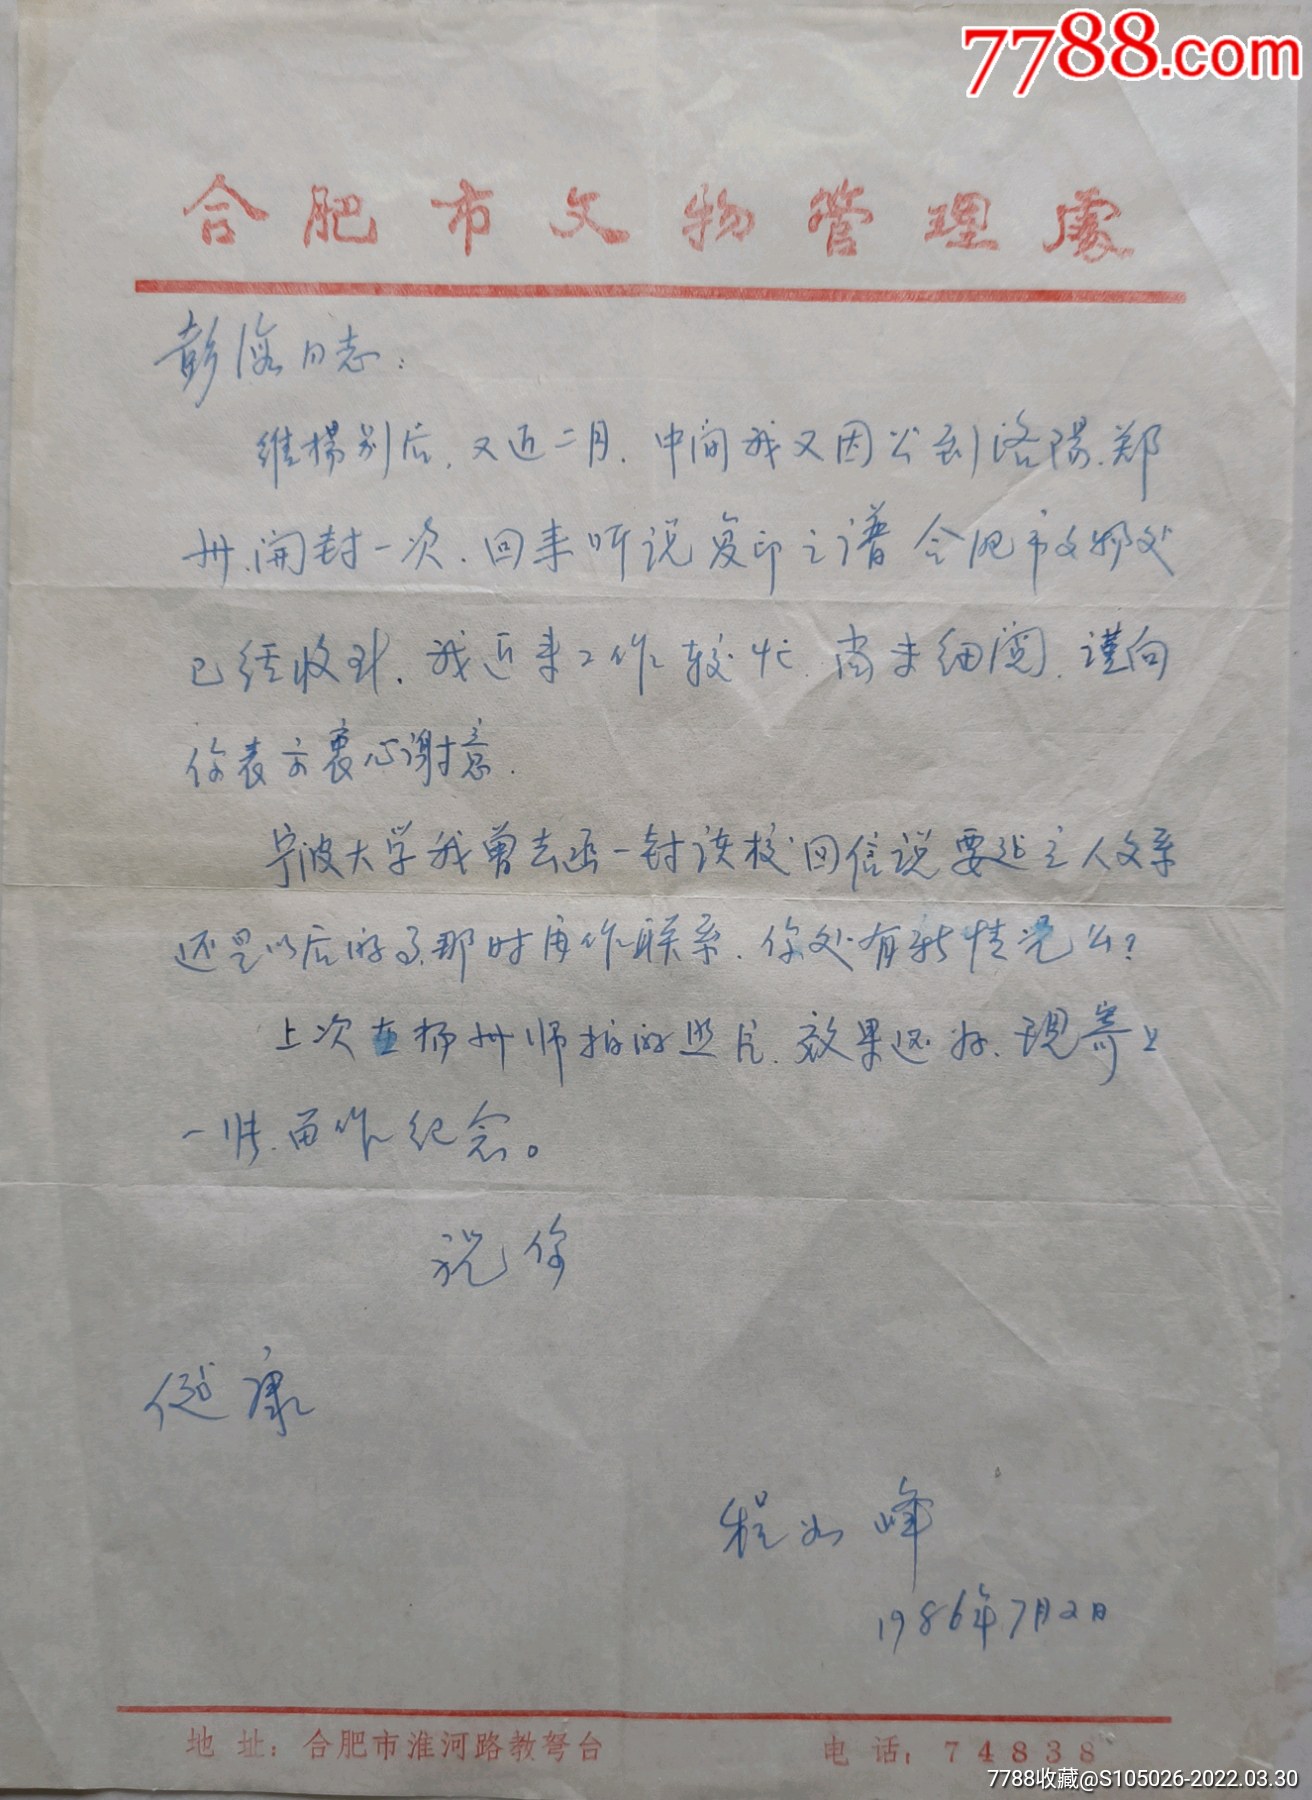 7788.com
合肥市文物管理處
彭海同志：
维扬别后，又近二月，中间我又因公到洛陽、郑
州、開封一次，回来听说复印之谱合肥市文物处
已经收到，我近来工作较忙，尚未细閲，谨向
你表示衷心谢意。
宁波大学我曾去函一封该校回信说要延至人文系
还是以后的了，那时再作联系，你处有新情况么？
上次在扬州师拍的照片，效果还好，现寄上
一张，留作纪念。
祝你
健康
程如峰
1986年7月2日
地址：合肥市淮河路教弩台
电话：74838
7788收藏@S105026-2022.03.30